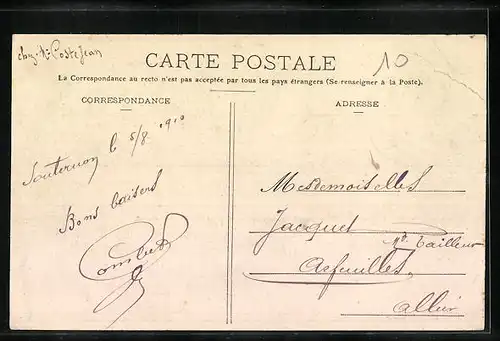 chez Mr Coste Jean
10
CARTE POSTALE
La Correspondance au recto n'est pas acceptée par tous les pays étrangers (Se renseigner à la Poste).
CORRESPONDANCE
ADRESSE
Souternon le 5/8 1910
Bons baisers
Combes
Mesdemoiselles
Jacquet
Md. Tailleur
Arfeuilles
Allier